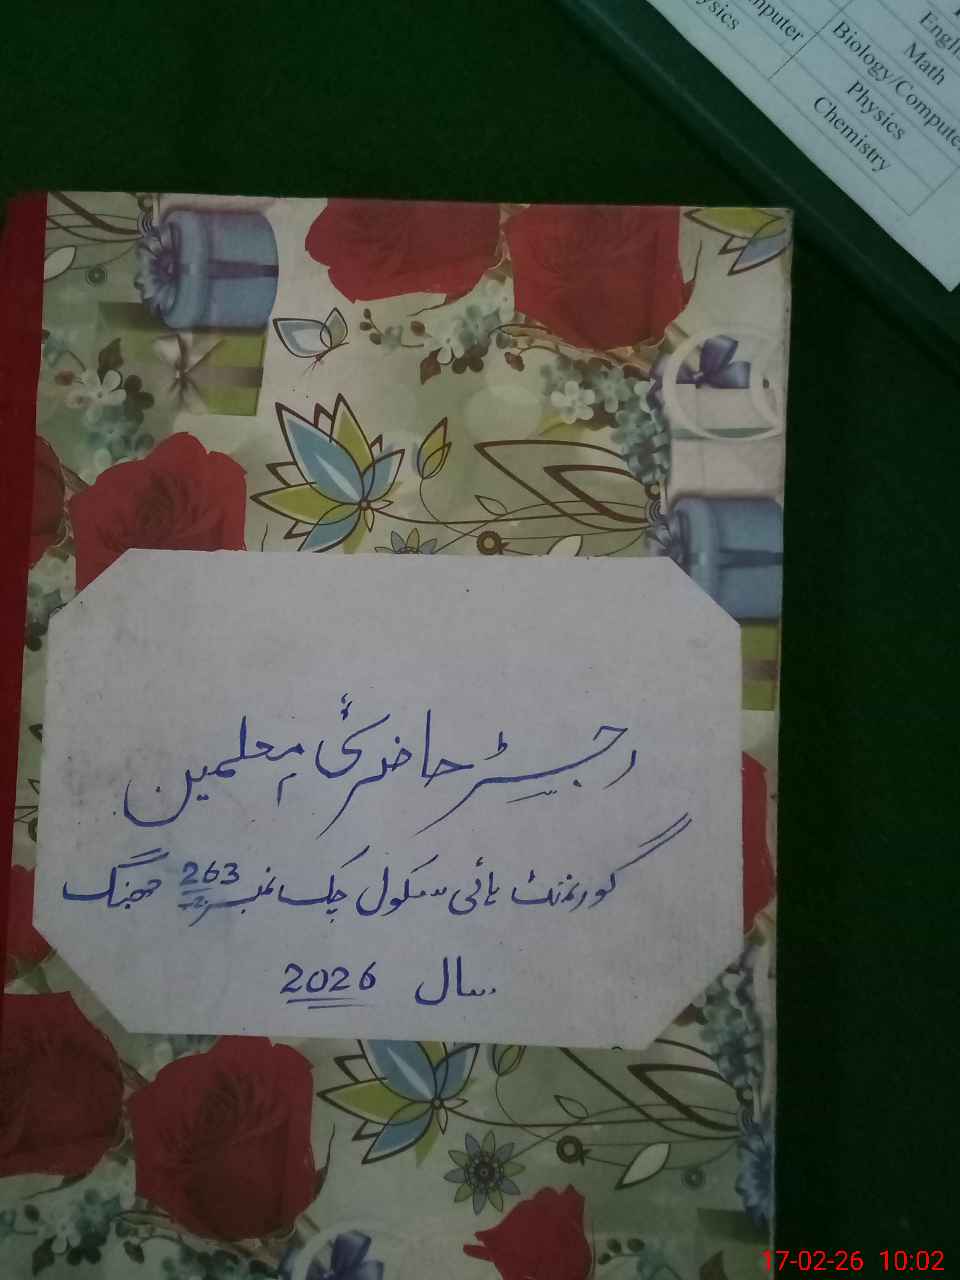 mputer
ysics
Engli
Math
Biology/Compute
Physics
Chemistry
رجسٹر حاضرئ معلمین
گورنمنٹ ہائی سکول چک نمبر 263 جھنگ
سال 2026
17-02-26 10:02